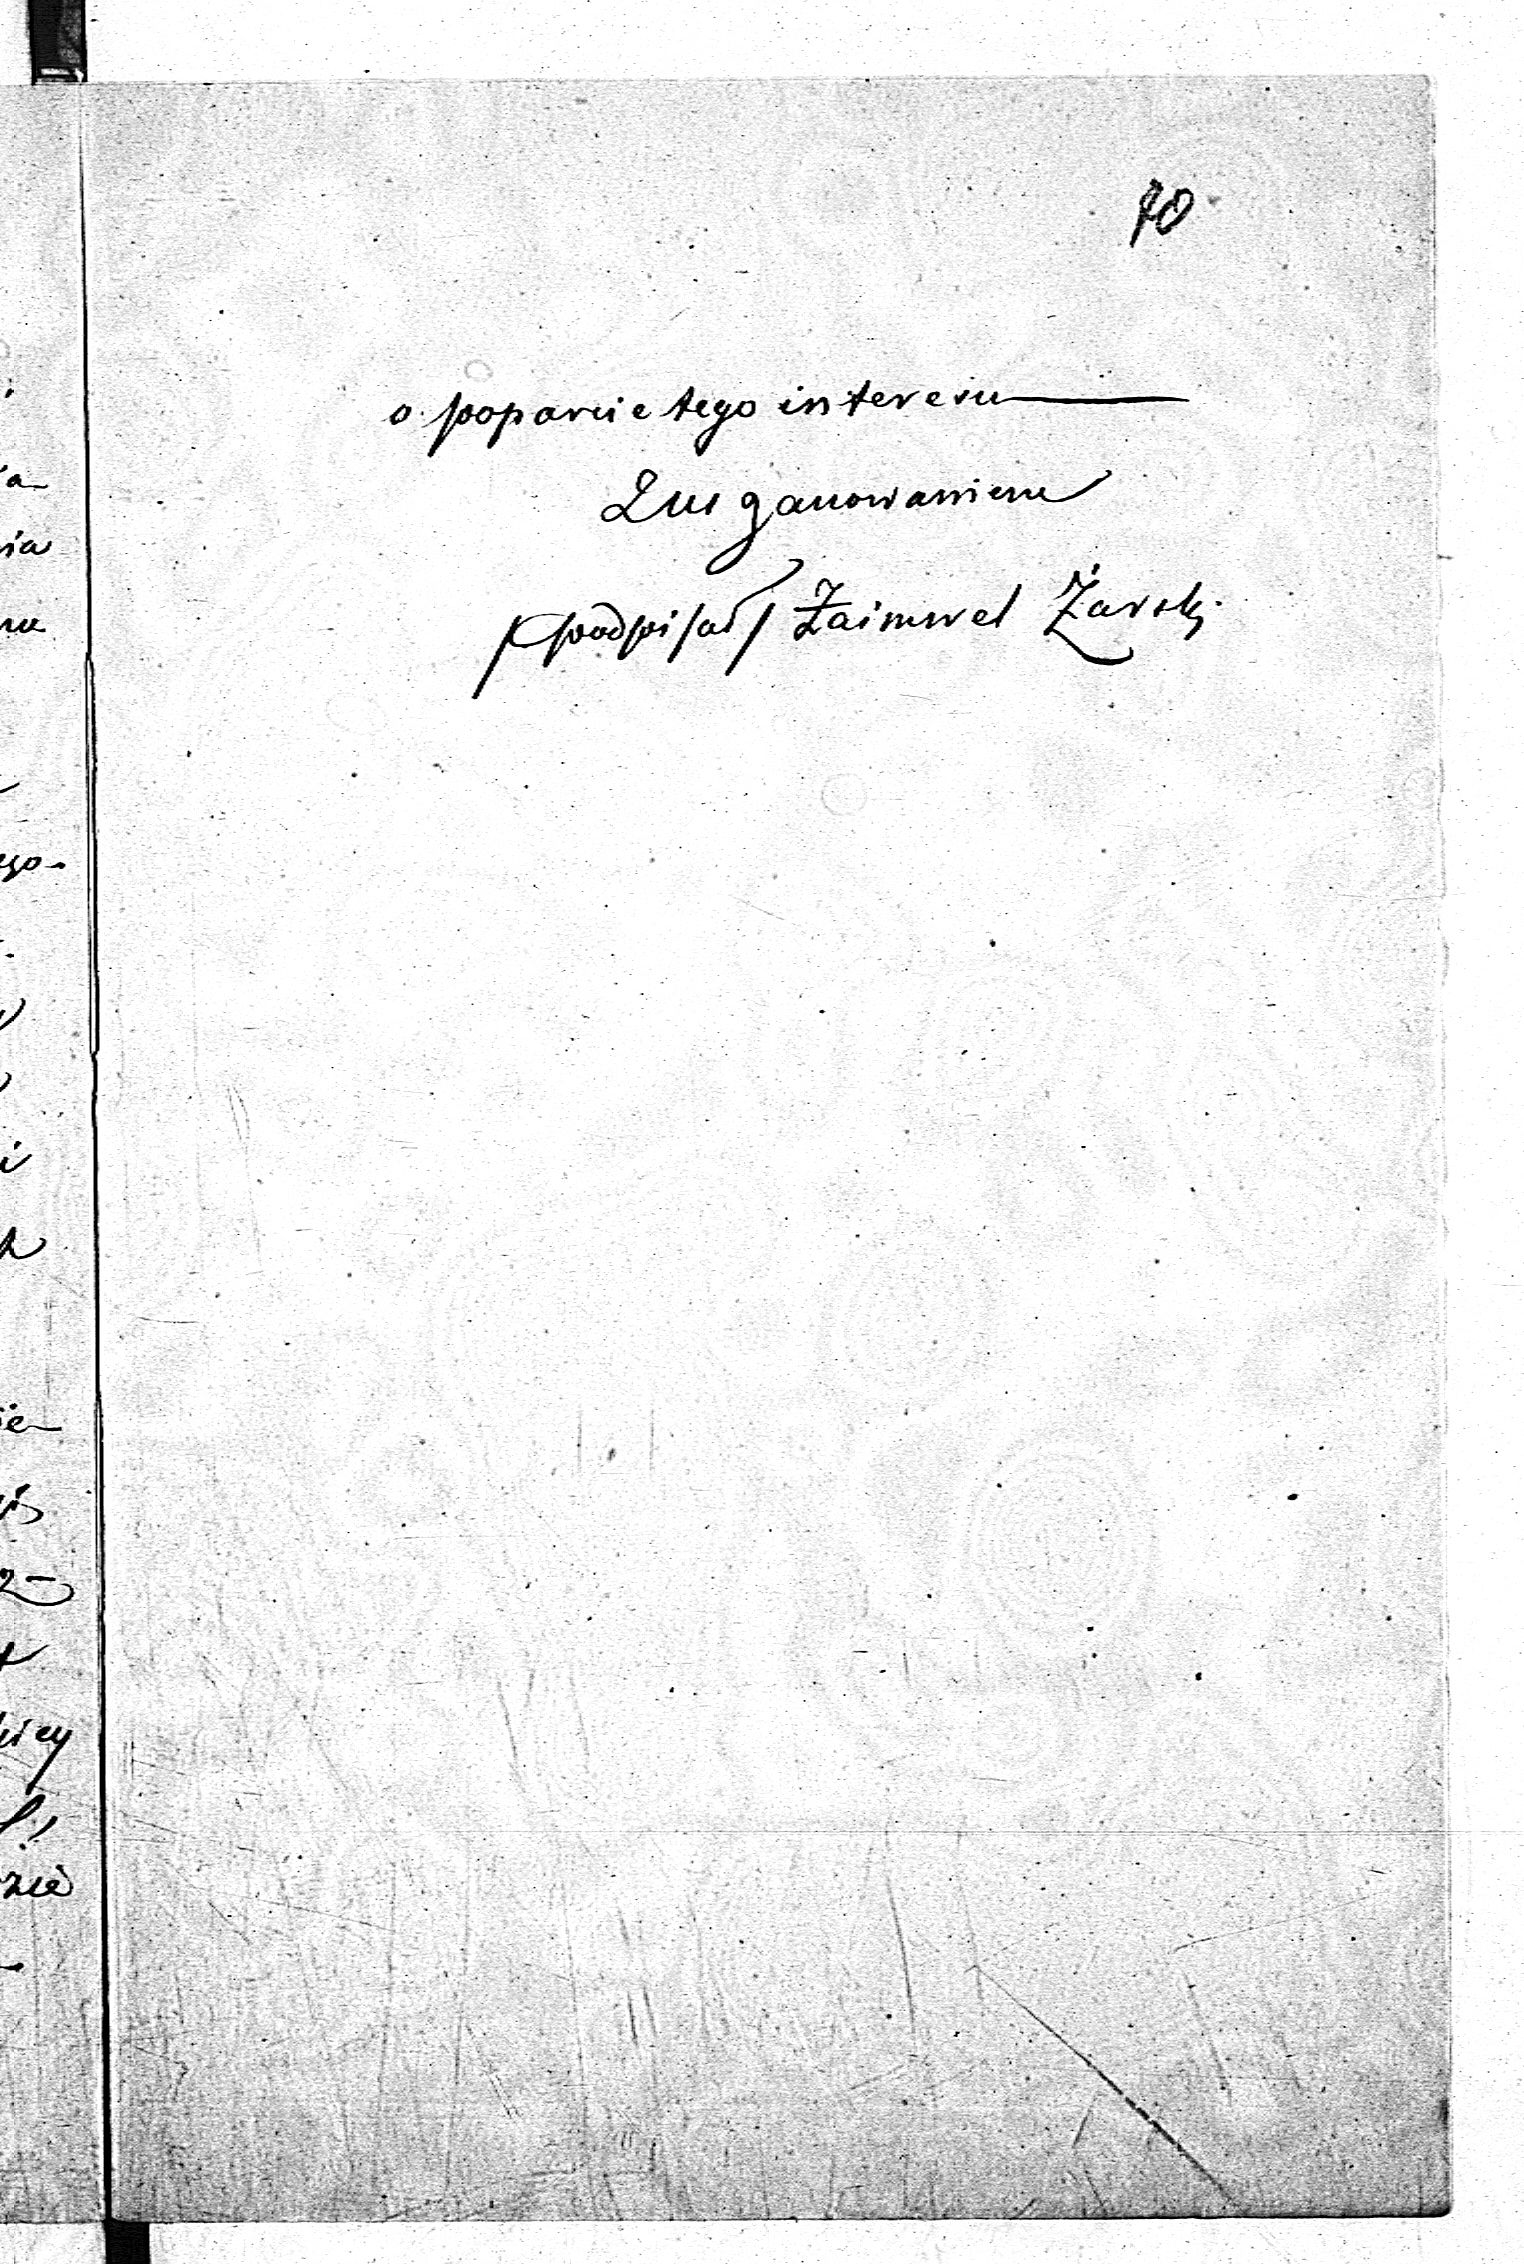 70
o poparcie tego interesu
Z uszanowaniem
/podpisał/ Zaimwel Żarski